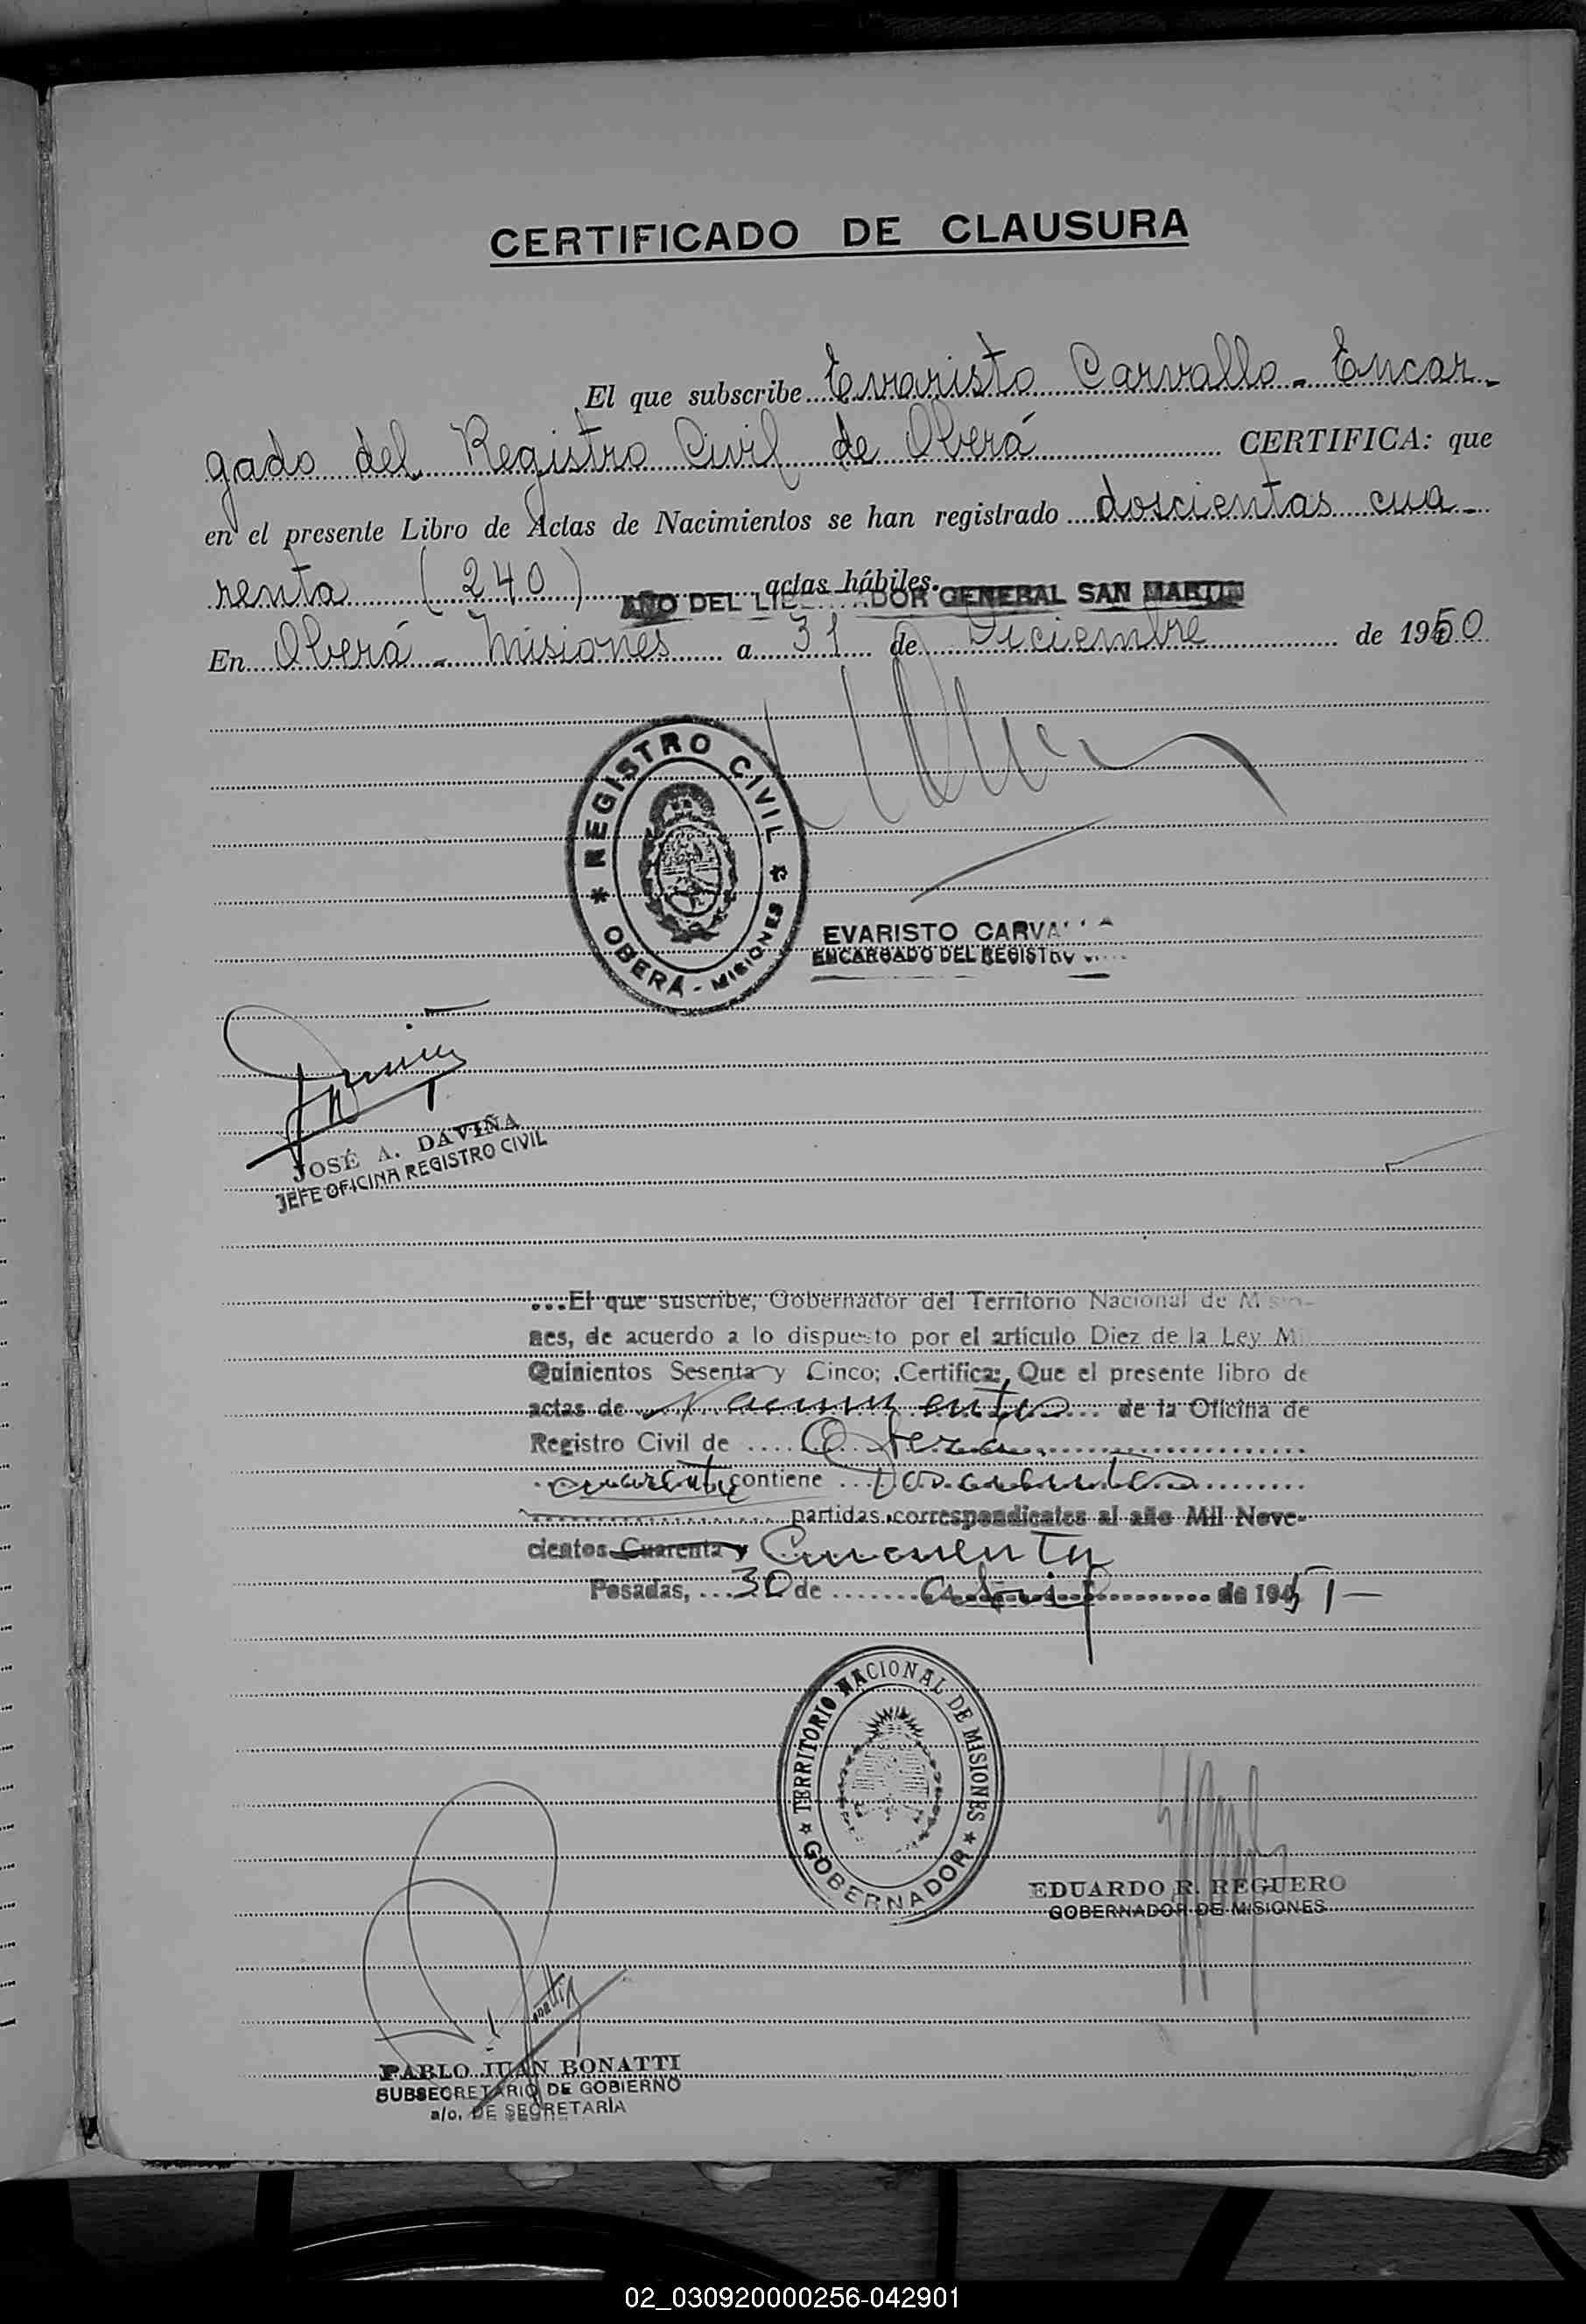 CERTIFICADO DE CLAUSURA
El que subscribe Evaristo Carvallo - Encar-
gado del Registro Civil de Oberá CERTIFICA: que
en el presente Libro de Actas de Nacimientos se han registrado doscientas cua-
renta (240) actas hábiles.
AÑO DEL LIBERTADOR GENERAL SAN MARTIN
En Oberá - Misiones a 31 de Diciembre de 1950
REGISTRO CIVIL
OBERÁ - MISIONES
EVARISTO CARVALLO
ENCARGADO DEL REGISTRO
JOSÉ A. DAVIÑA
JEFE OFICINA REGISTRO CIVIL
...El que suscribe, Gobernador del Territorio Nacional de Misio-
nes, de acuerdo a lo dispuesto por el artículo Diez de la Ley Mil
Quinientos Sesenta y Cinco; Certifica: Que el presente libro de
actas de Nacimientos de la Oficina de
Registro Civil de Oberá
cuarenta contiene Doscientos
partidas correspondientes al año Mil Nove-
cientos Cuarenta y Cincuenta
Posadas, 30 de abril de 1951 -
TERRITORIO NACIONAL DE MISIONES
GOBERNADOR
EDUARDO R. REGUERO
GOBERNADOR DE MISIONES
PABLO JUAN BONATTI
SUBSECRETARIO DE GOBIERNO
a/c. DE SECRETARÍA
02_030920000256-042901